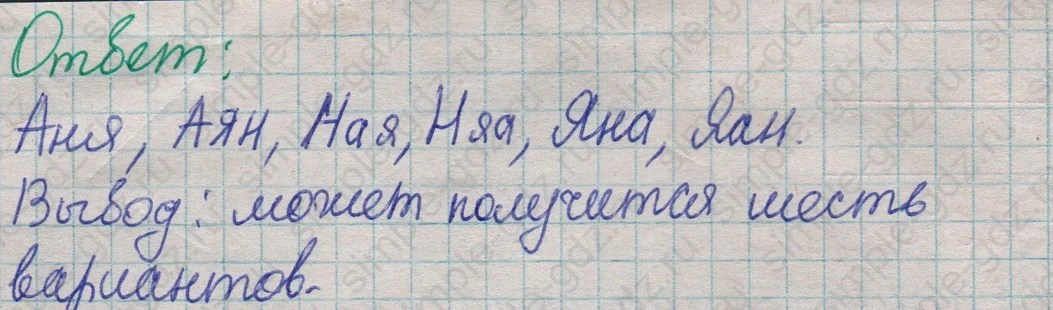 Ответ:
Аня, Аян, Ная, Няа, Яна, Яан.
Вывод: может получится шесть
вариантов.